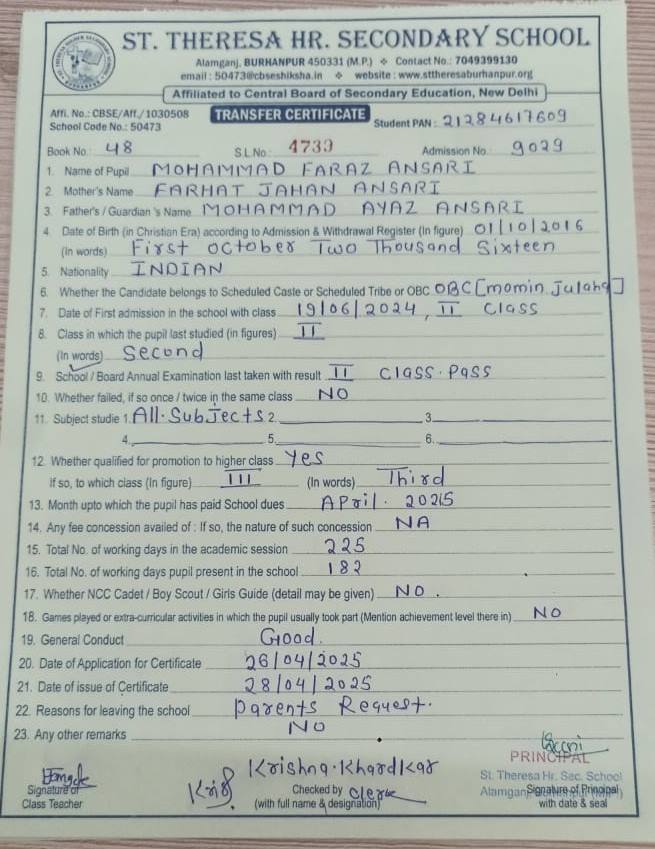 ST. THERESA HR. SECONDARY SCHOOL
Alamganj, BURHANPUR 450331 (M.P.) ❖ Contact No.: 7049399130
email : 50473@cbseshiksha.in ❖ website : www.sttheresaburhanpur.org
Affiliated to Central Board of Secondary Education, New Delhi
Affi. No.: CBSE/Aff./1030508 TRANSFER CERTIFICATE Student PAN : 21284617609
School Code No.: 50473
Book No.: 48 S.L.No. 4739 Admission No. 9029
1. Name of Pupil MOHAMMAD FARAZ ANSARI
2. Mother's Name FARHAT JAHAN ANSARI
3. Father's / Guardian 's Name MOHAMMAD AYAZ ANSARI
4. Date of Birth (in Christian Era) according to Admission & Withdrawal Register (In figure) 01/10/2016
(in words) First october Two Thousand Sixteen
5. Nationality INDIAN
6. Whether the Candidate belongs to Scheduled Caste or Scheduled Tribe or OBC OBC [momin Julaha]
7. Date of First admission in the school with class 19/06/2024, II Class
8. Class in which the pupil last studied (in figures) II
(In words) Second
9. School / Board Annual Examination last taken with result II Class. Pass
10. Whether failed, if so once / twice in the same class NO
11. Subject studie 1. All. Subjects 2. 3.
4. 5. 6.
12. Whether qualified for promotion to higher class Yes
If so, to which class (In figure) III (In words) Third
13. Month upto which the pupil has paid School dues April. 2025
14. Any fee concession availed of : If so, the nature of such concession NA
15. Total No. of working days in the academic session 225
16. Total No. of working days pupil present in the school 182
17. Whether NCC Cadet / Boy Scout / Girls Guide (detail may be given) NO.
18. Games played or extra-curricular activities in which the pupil usually took part (Mention achievement level there in) NO
19. General Conduct Good.
20. Date of Application for Certificate 26/04/2025
21. Date of issue of Certificate 28/04/2025
22. Reasons for leaving the school Parents Request.
23. Any other remarks NO
PRINCIPAL
Krishna. Khardkar
St. Theresa Hr. Sec. School
Signature of Checked by Clerk Alamganj Signature of Principal
Class Teacher (with full name & designation) with date & seal